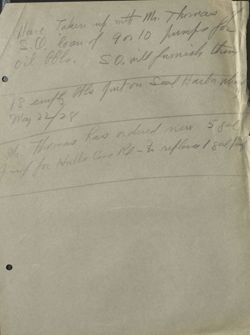 Have taken up with Mr. Thomas
S.O. loan of 9 or 10 pumps for
oil bbls. S.O. will furnish them
18 empty bbls put on Seal Harbor
May 22/28
Mr. Thomas has ordered new 5 gal
pump for Hulls Cove Rd - to replace 1 gal